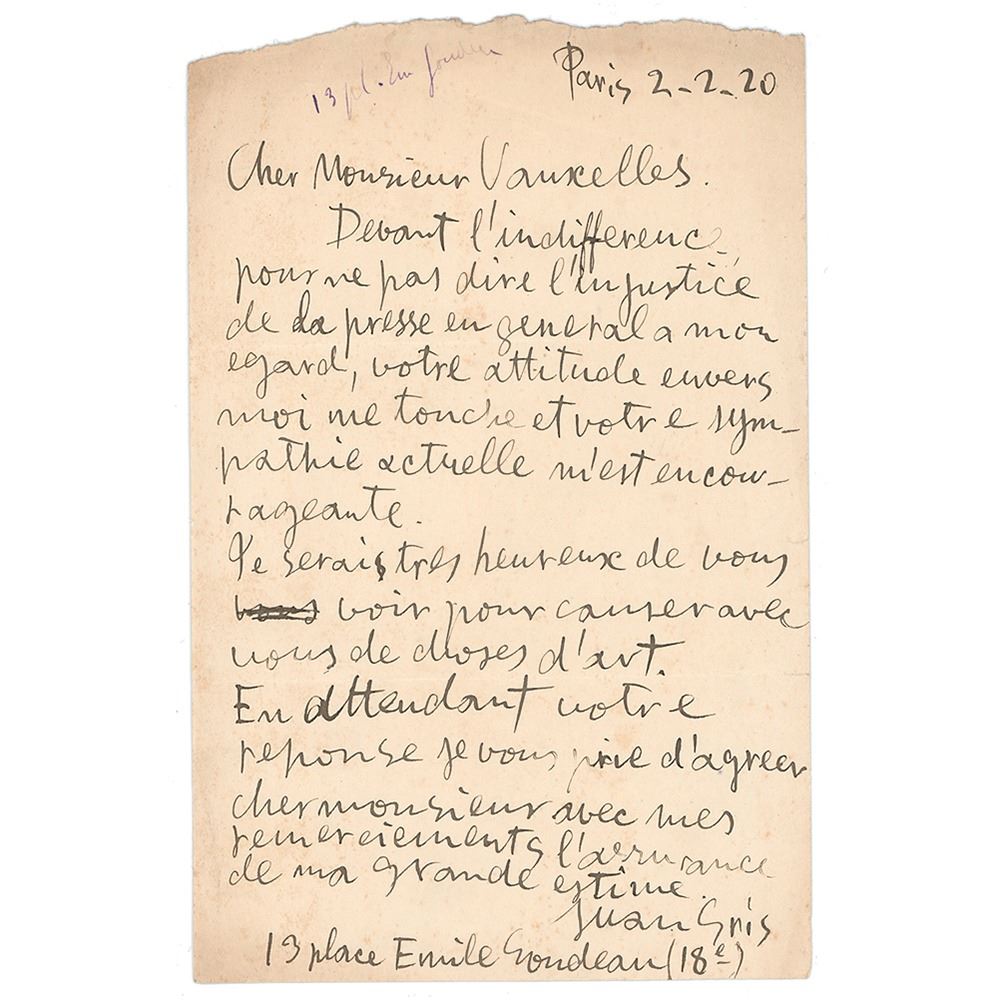 13 pl. Em Goudeau
Paris 2-2-20
Cher Monsieur Vauxcelles.
Devant l'indifference
pour ne pas dire l'injustice
de la presse en general a mon
egard, votre attitude envers
moi me touche et votre sym-
pathie actuelle m'est encou-
rageante.
Je serais tres heureux de vous
voir pour causer avec
vous de choses d'art.
En attendant votre
reponse je vous prie d'agreer
cher monsieur avec mes
remerciements l'assurance
de ma grande estime.
Juan Gris
13 place Emile Goudeau (18e)